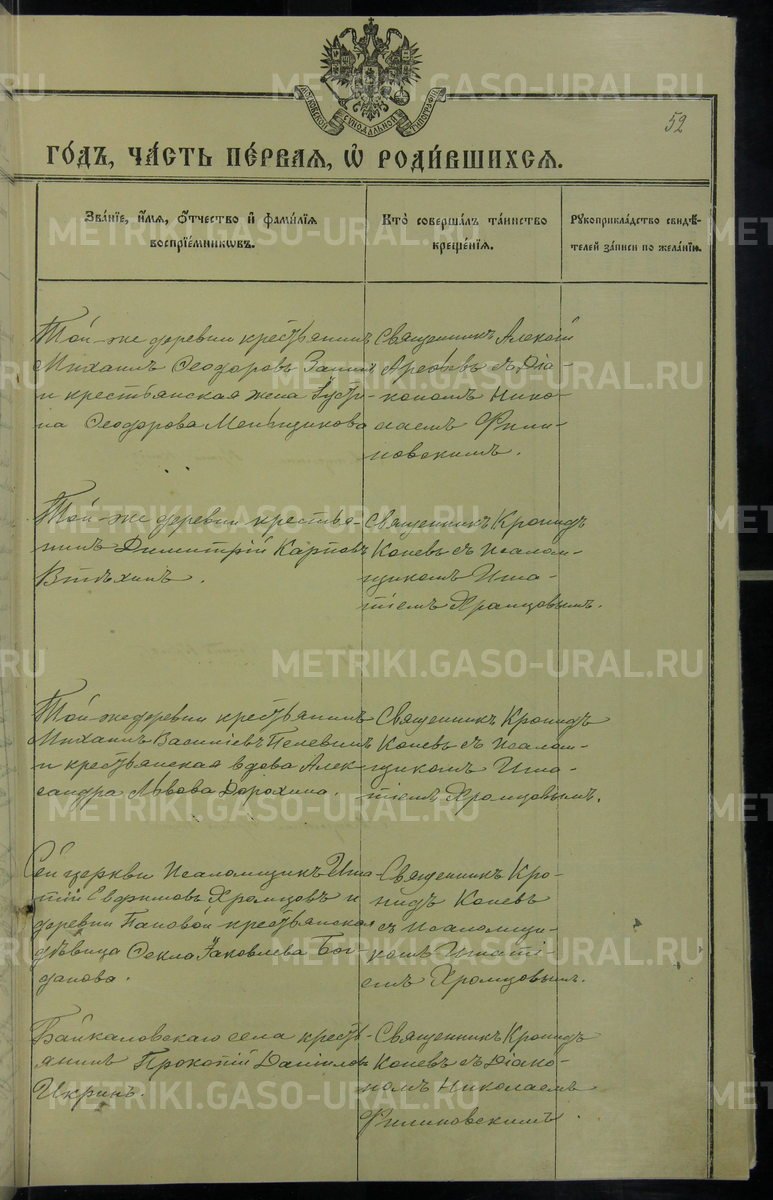 МОСКОВСКОЙ СѴНОДАЛЬНОЙ ТИПОГРАФІИ
METRIKI.GASO-URAL.RU
52
ГО́ДЪ, ЧА́СТЬ ПЕ́РВАЯ, Ѡ РОДИ́ВШИХСЯ.
Зва́нїе, и́мя, о́тчество и фами́лїя
воспрїе́мникѡвъ.
Кто̀ соверша́лъ та́инство
креще́нїя.
Рꙋкоприкла́дство свидѣ́-
телей за́писи по жела́нїю.
Той-же деревни крестьянинъ
Михаилъ Ѳеодоровъ
и крестьянская жена Іусти-
на Ѳеодорова Меньщикова
Священникъ Алексій
съ Діа-
кономъ Нико-
лаемъ Фили-
повскимъ.
Той-же деревни крестья-
нинъ Димитрій Карповъ
Втѣхинъ.
Священникъ Кронидъ
Коневъ съ псалом-
щикомъ Игна-
тіемъ Храмцовымъ.
Той-же деревни крестьянинъ
Михаилъ Василіевъ Пелевинъ
и крестьянская вдова Алек-
сандра Львова Дорохина.
Священникъ Кронидъ
Коневъ съ псалом-
щикомъ Игна-
тіемъ Храмцовымъ.
Сей церкви псаломщикъ Игна-
тій Евфимовъ Храмцовъ и
деревни Пановой крестьянская
дѣвица Ѳекла Іаковлева Бог-
данова.
Священникъ Кро-
нидъ Коневъ
съ псаломщи-
комъ Игнаті-
емъ Храмцовымъ.
Байкаловскаго села кресть-
янинъ Прокопій Даніиловъ
Икринъ.
Священникъ Кронидъ
Коневъ съ Діако-
номъ Николаемъ
Филиповскимъ.